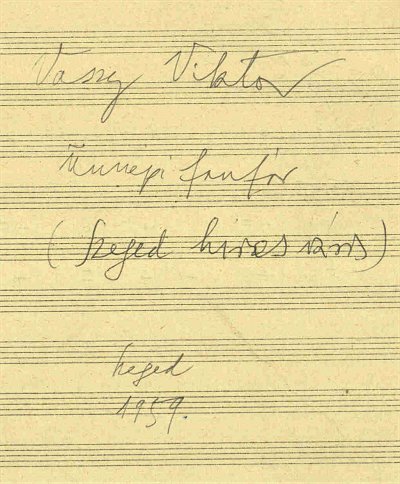 Vaszy Viktor
Ünnepi fanfár
(Szeged híres város)
Szeged
1959.